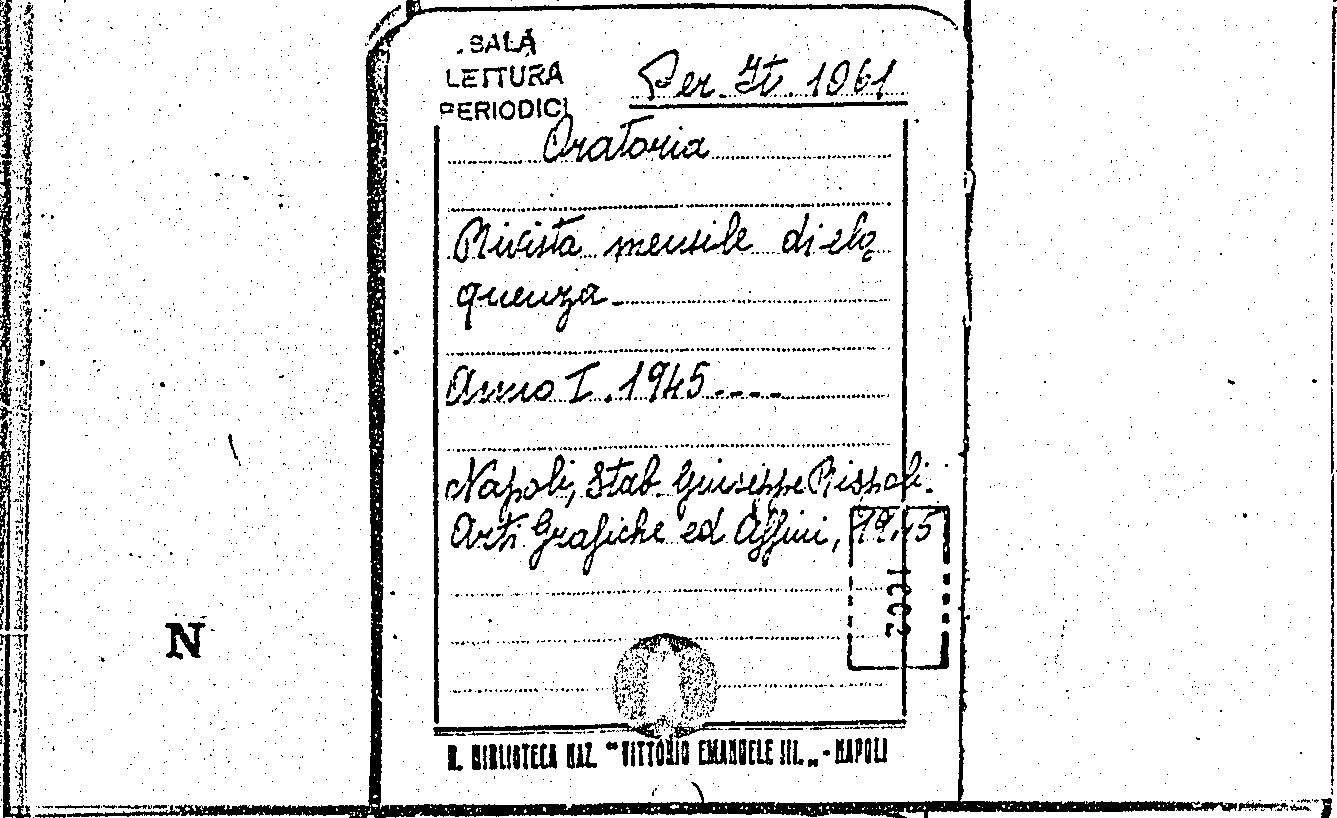 SALA
LETTURA
PERIODICI
Per. It. 1061
Oratoria
Rivista mensile di elo
quenza
Anno I. 1945----
Napoli, Stab. Giuseppe Rispoli.
Arti Grafiche ed Affini, 1945
N
R. BIBLIOTECA NAZ. "VITTORIO EMANUELE III. „ - NAPOLI